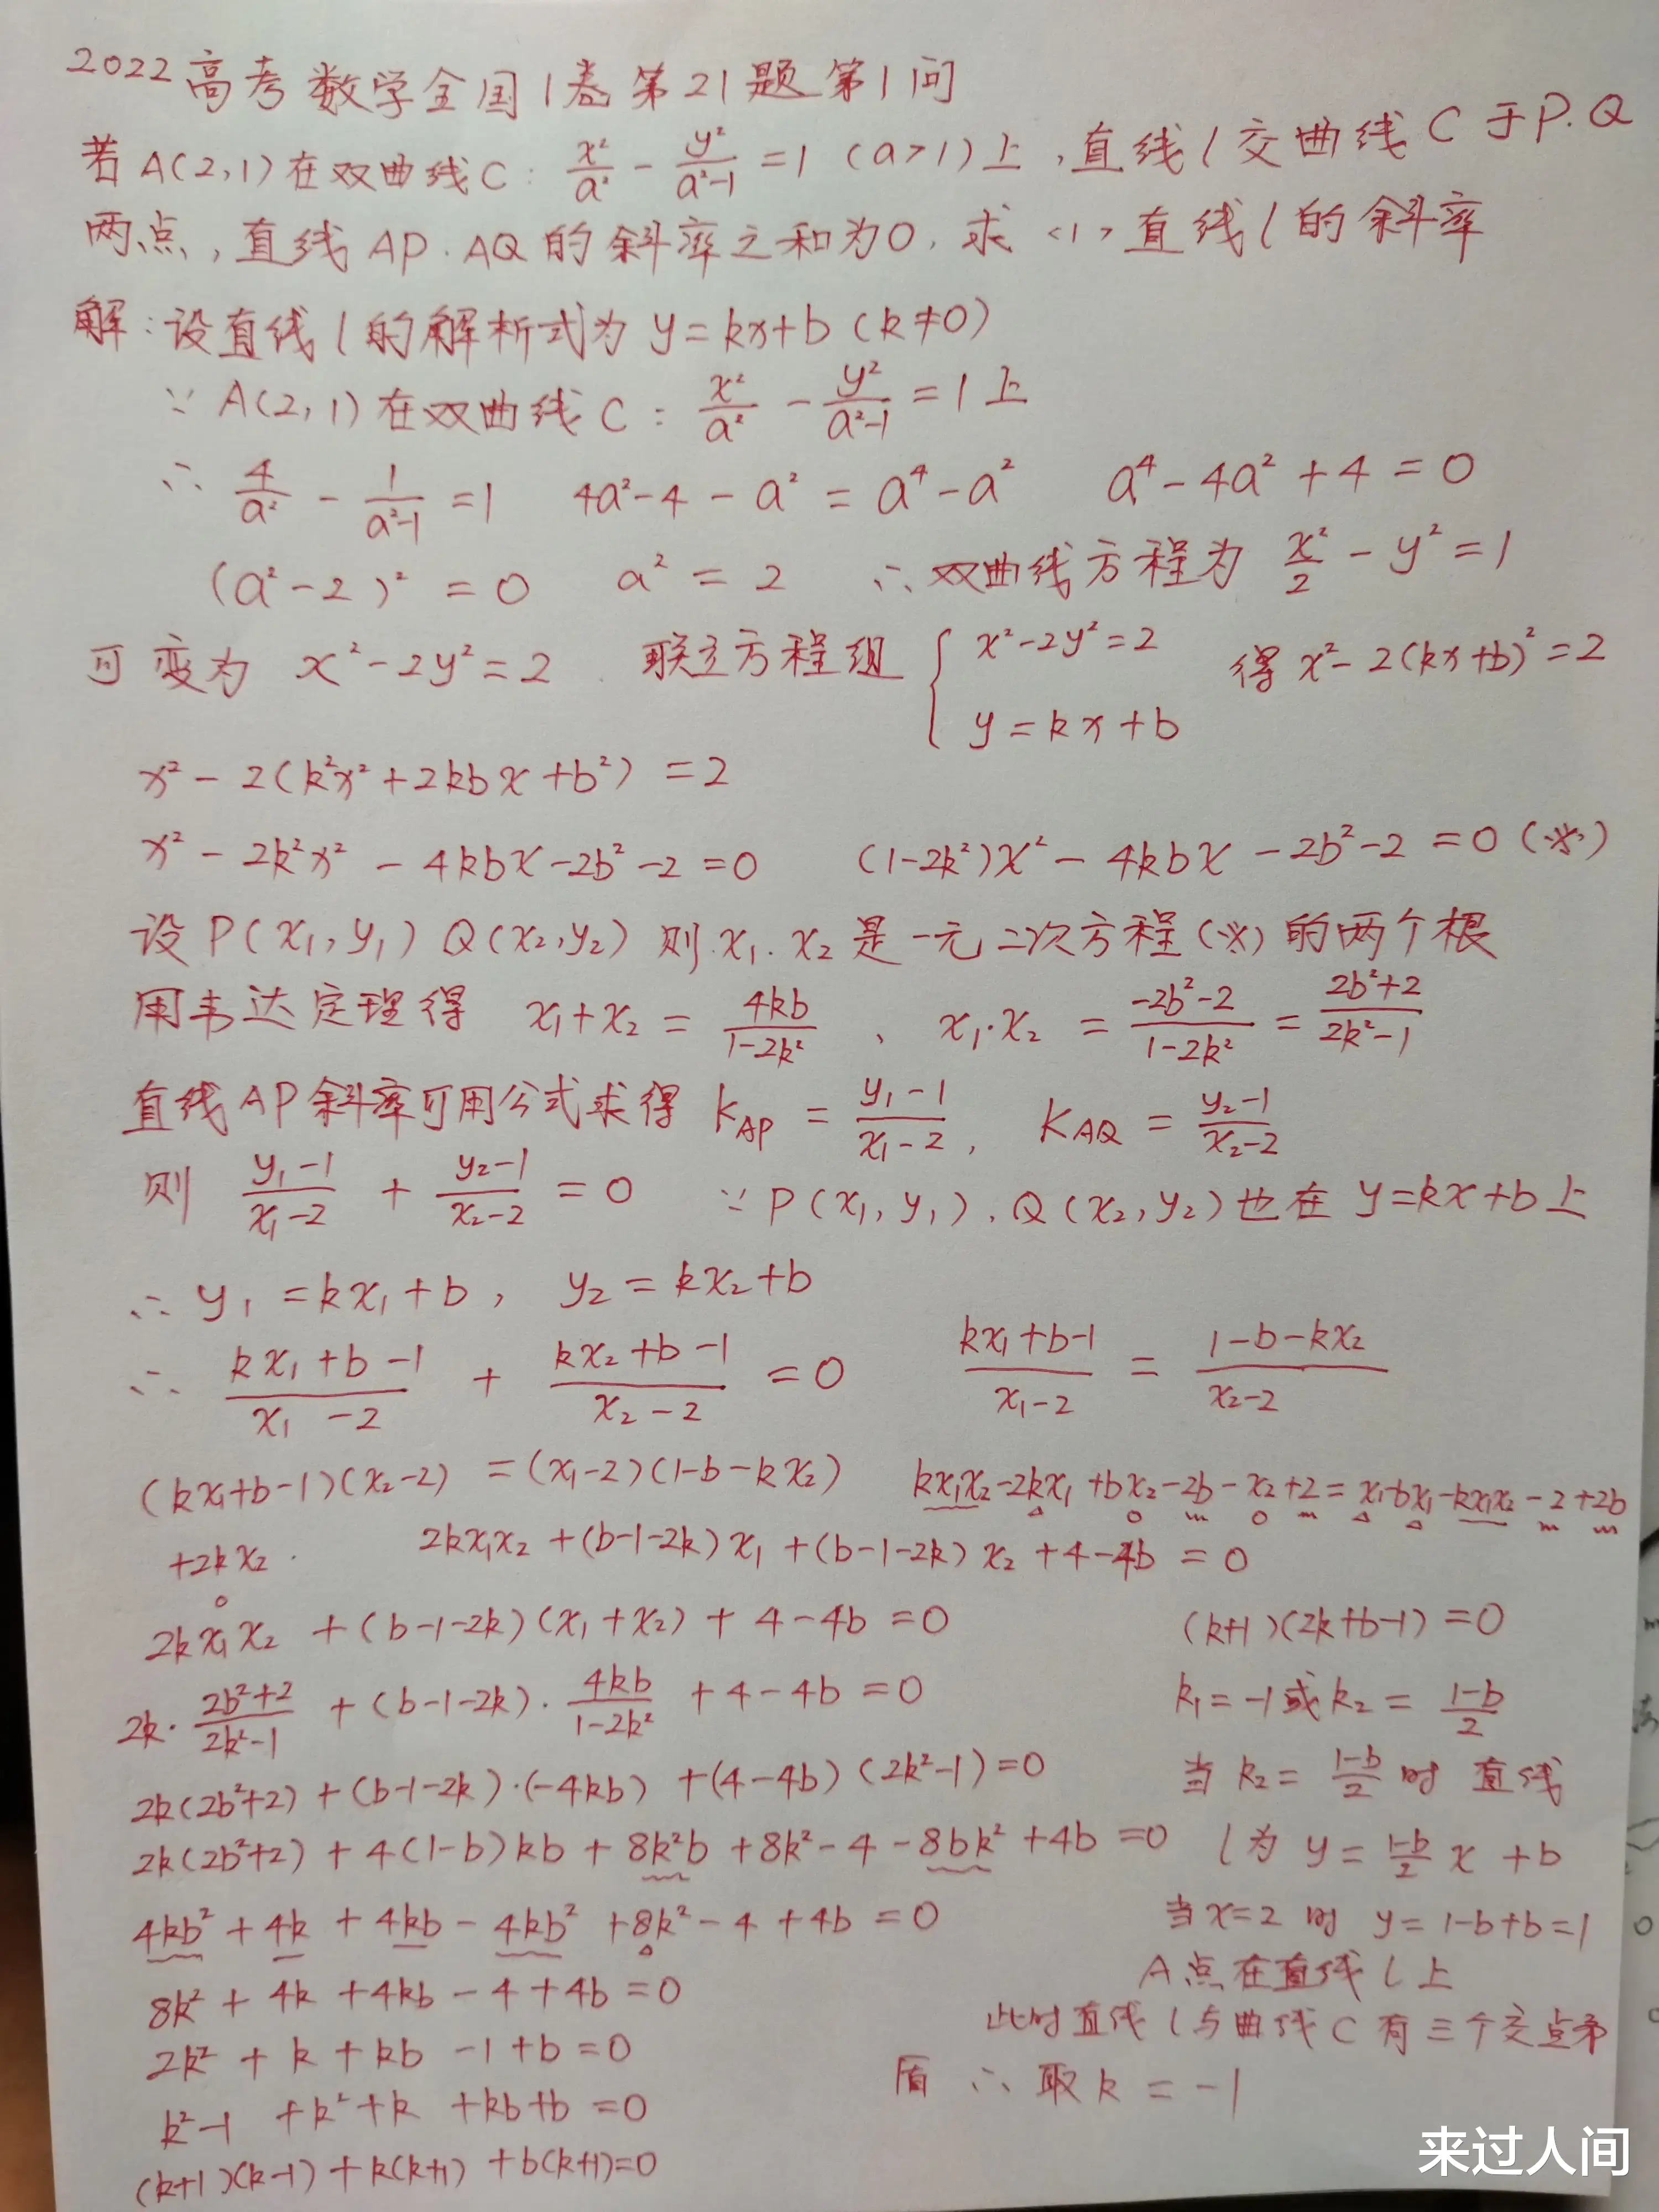 2022高考数学全国1卷第21题第1问
若A(2,1)在双曲线C: x²/a² - y²/(a²-1) = 1 (a>1)上,直线l交曲线C于P.Q
两点,直线AP.AQ的斜率之和为0.求<1>直线l的斜率
解:设直线l的解析式为y=kx+b(k≠0)
∵A(2,1)在双曲线C: x²/a² - y²/(a²-1) = 1上
∴ 4/a² - 1/(a²-1) = 1 4a²-4-a² = a⁴-a² a⁴-4a²+4=0
(a²-2)²=0 a²=2 ∴双曲线方程为 x²/2 - y² = 1
可变为 x²-2y²=2. 联立方程组 { x²-2y²=2 得x²-2(kx+b)²=2
y=kx+b
x²-2(k²x²+2kbx+b²)=2
x²-2k²x²-4kbx-2b²-2=0 (1-2k²)x²-4kbx-2b²-2=0(※)
设P(x₁,y₁) Q(x₂,y₂) 则.x₁.x₂是一元二次方程(※)的两个根
用韦达定理得 x₁+x₂ = 4kb/(1-2k²) 、 x₁·x₂ = (-2b²-2)/(1-2k²) = (2b²+2)/(2k²-1)
直线AP斜率可用公式求得 KAP = (y₁-1)/(x₁-2), KAQ = (y₂-1)/(x₂-2)
则 (y₁-1)/(x₁-2) + (y₂-1)/(x₂-2) = 0 ∵P(x₁,y₁).Q(x₂,y₂)也在y=kx+b上
∴y₁=kx₁+b, y₂=kx₂+b
∴ (kx₁+b-1)/(x₁-2) + (kx₂+b-1)/(x₂-2) = 0 (kx₁+b-1)/(x₁-2) = (1-b-kx₂)/(x₂-2)
(kx₁+b-1)(x₂-2) = (x₁-2)(1-b-kx₂) kx₁x₂-2kx₁+bx₂-2b-x₂+2=x₁-bx₁-kx₁x₂-2+2b
+2kx₂. 2kx₁x₂+(b-1-2k)x₁+(b-1-2k)x₂+4-4b=0
2kx₁x₂+(b-1-2k)(x₁+x₂)+4-4b=0
2k·(2b²+2)/(2k²-1)+(b-1-2k)·4kb/(1-2k²)+4-4b=0
2k(2b²+2)+(b-1-2k)·(-4kb)+(4-4b)(2k²-1)=0
2k(2b²+2)+4(1-b)kb+8k²b+8k²-4-8bk²+4b=0
4kb²+4k+4kb-4kb²+8k²-4+4b=0
8k²+4k+4kb-4+4b=0
2k²+k+kb-1+b=0
k²-1+k²+k+kb+b=0
(k+1)(k-1)+k(k+1)+b(k+1)=0
(k+1)(2k+b-1)=0
k₁=-1或k₂=(1-b)/2
当k₂=(1-b)/2时 直线
l为 y=(1-b)/2 x+b
当x=2时 y=1-b+b=1
A点在直线l上
此时直线l与曲线C有三个交点矛
盾 ∴取k=-1
来过人间